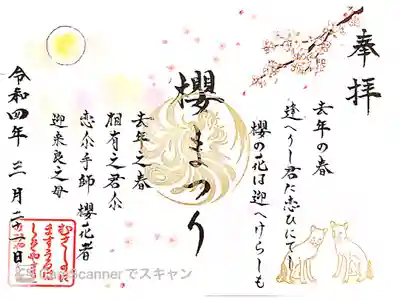 奉拝
去年の春
逢へりし君に恋ひにてし
櫻の花は迎へけらしも
櫻まつり
去年之春
相有之君尓
恋尓手師 櫻花者
迎来良之母
令和四年 三月
むさしのに
CamScannerでスキャン